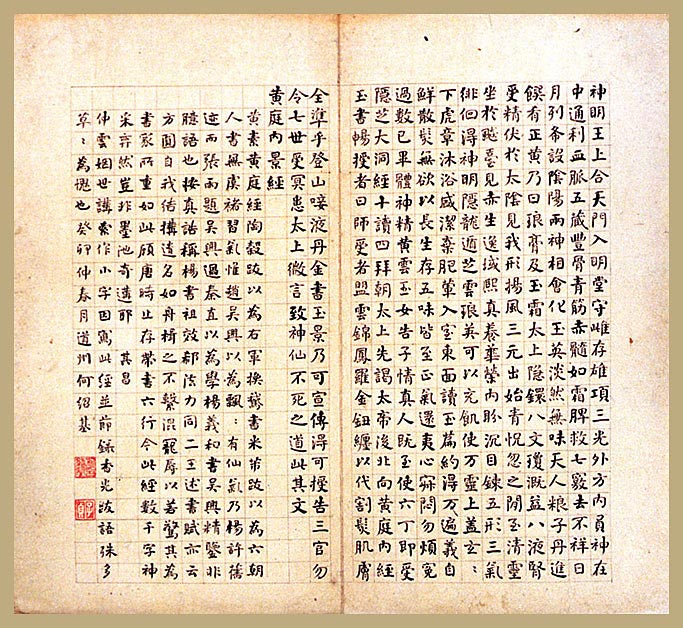 神明王上合天門入明堂守雌存雄項三光外方內員神在
中通利血脈五藏豐骨青筋赤髓如霜脾救七竅去不祥日
月列布設陰陽兩神相會化玉英淡然無味天人粮子丹進
饌肴正黃乃曰琅膏及玉霜太上隱鐶八文瓊溉益八液腎
受精伏於太陰見我形揚風三元出始青怳忽之間至清靈
坐於飈臺見赤生逸域熙真養華榮內盼沉目鍊五形三氣
徘徊得神明隱龍遁芝雲琅英可以充飢使万靈上蓋玄〻
下虎章沐浴盛潔棄肥葷入室東面誦玉篇約得万遍義自
鮮散髮無欲以長生存五味皆至正氣還夷心寂悶勿煩冤
過數已畢體神精黃雲玉女告子情真人既至使六丁即受
隱芝大洞經十讀四拜朝太上先謁太帝後北向黃庭內經
玉書暢授者曰師受者盟雲錦鳳羅金鈕纏以代割髮肌膚
全準乎登山唼液丹金書玉景乃可宣傳得可授告三官勿
令七世受冥患太上微言致神仙不死之道此其文
黃庭內景經
黃素黃庭經陶穀跋以為右軍換鵞書米芾跋以為六朝
人書無虞褚習氣惟趙吳興以為飄〻有仙氣乃楊許舊
迹而張雨題吳興過秦直以為學楊羲和書吳興精鑒非
臆語也按真誥稱楊書祖效郗法力同二王述書賦亦云
方圓自我結構遺名如舟楫之不繫混寵辱以若驚其為
書家所重如此顧唐時止存帶書六行今此經數千字神
采弈然豈非墨池奇遘耶 其昌
仲雲姻世講索作小字因寫此經並節錄香光跋語殊多
草〻為愧也癸卯仲春月道州何紹基